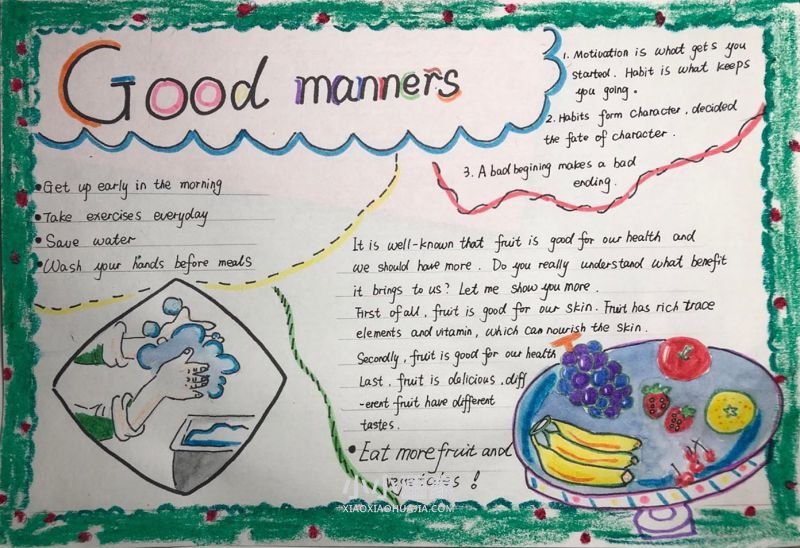 Good manners
1. Motivation is what gets you
started. Habit is what keeps
you going.
2. Habits form character, decided
the fate of character.
3. A bad begining makes a bad
ending.
Get up early in the morning
Take exercises everyday
Save water
Wash your hands before meals
It is well-known that fruit is good for our health and
we should have more. Do you really understand what benefit
it brings to us? Let me show you more.
First of all, fruit is good for our skin. Fruit has rich trace
elements and vitamin, which can nourish the skin.
Secondly, fruit is good for our health
Last, fruit is delicious, diff
-erent fruit have different
tastes.
Eat more fruit and
!
XIAOXIAOHUAJIA.COM